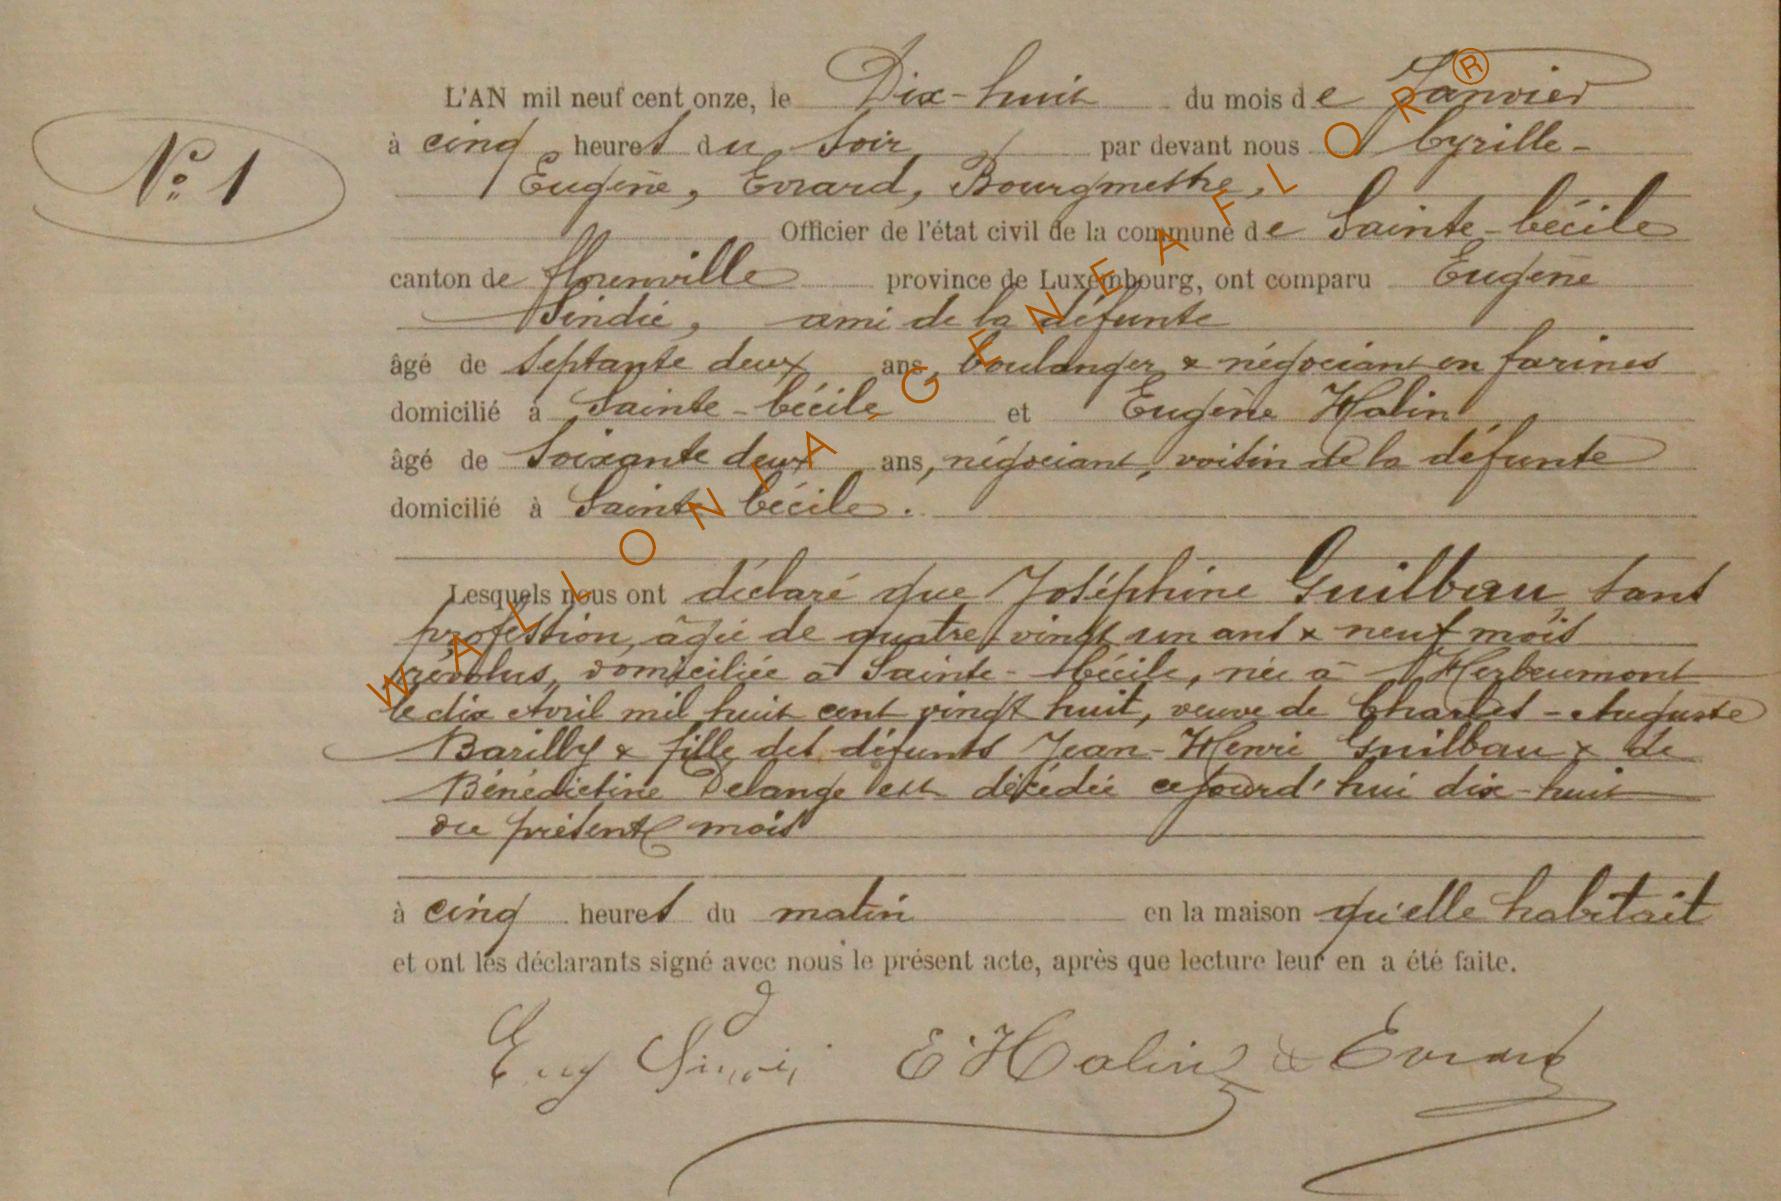 L'AN mil neuf cent onze, le Dix-huit du mois de Janvier
N° 1
à cinq heures du soir par devant nous Cyrille-
Eugène, Evrard, Bourgmestre,
Officier de l'état civil de la commune de Sainte-Cécile
canton de florenville province de Luxembourg, ont comparu Eugène
Sindié, ami de la défunte
âgé de septante deux ans, boulanger & négociant en farines
domicilié à Sainte-Cécile et Eugène Halin
âgé de soixante deux ans, négociant, voisin de la défunte
domicilié à Sainte Cécile.
Lesquels nous ont déclaré que Joséphine Guilbau, sans
profession, âgée de quatre vingt un ans & neuf mois
révolus, domiciliée à Sainte-Cécile, née à Herbeumont
le dix Avril mil huit cent vingt huit, veuve de Charles-Auguste
Barilly & fille des défunts Jean-Henri Guilbau & de
Bénédictine Delange est décédée cejourd'hui dix-huit
du présent mois
à cinq heures du matin en la maison qu'elle habitait
et ont les déclarants signé avec nous le présent acte, après que lecture leur en a été faite.
Eug Sindié E Halin Evrard
WALLONIA GENEAFLOR®